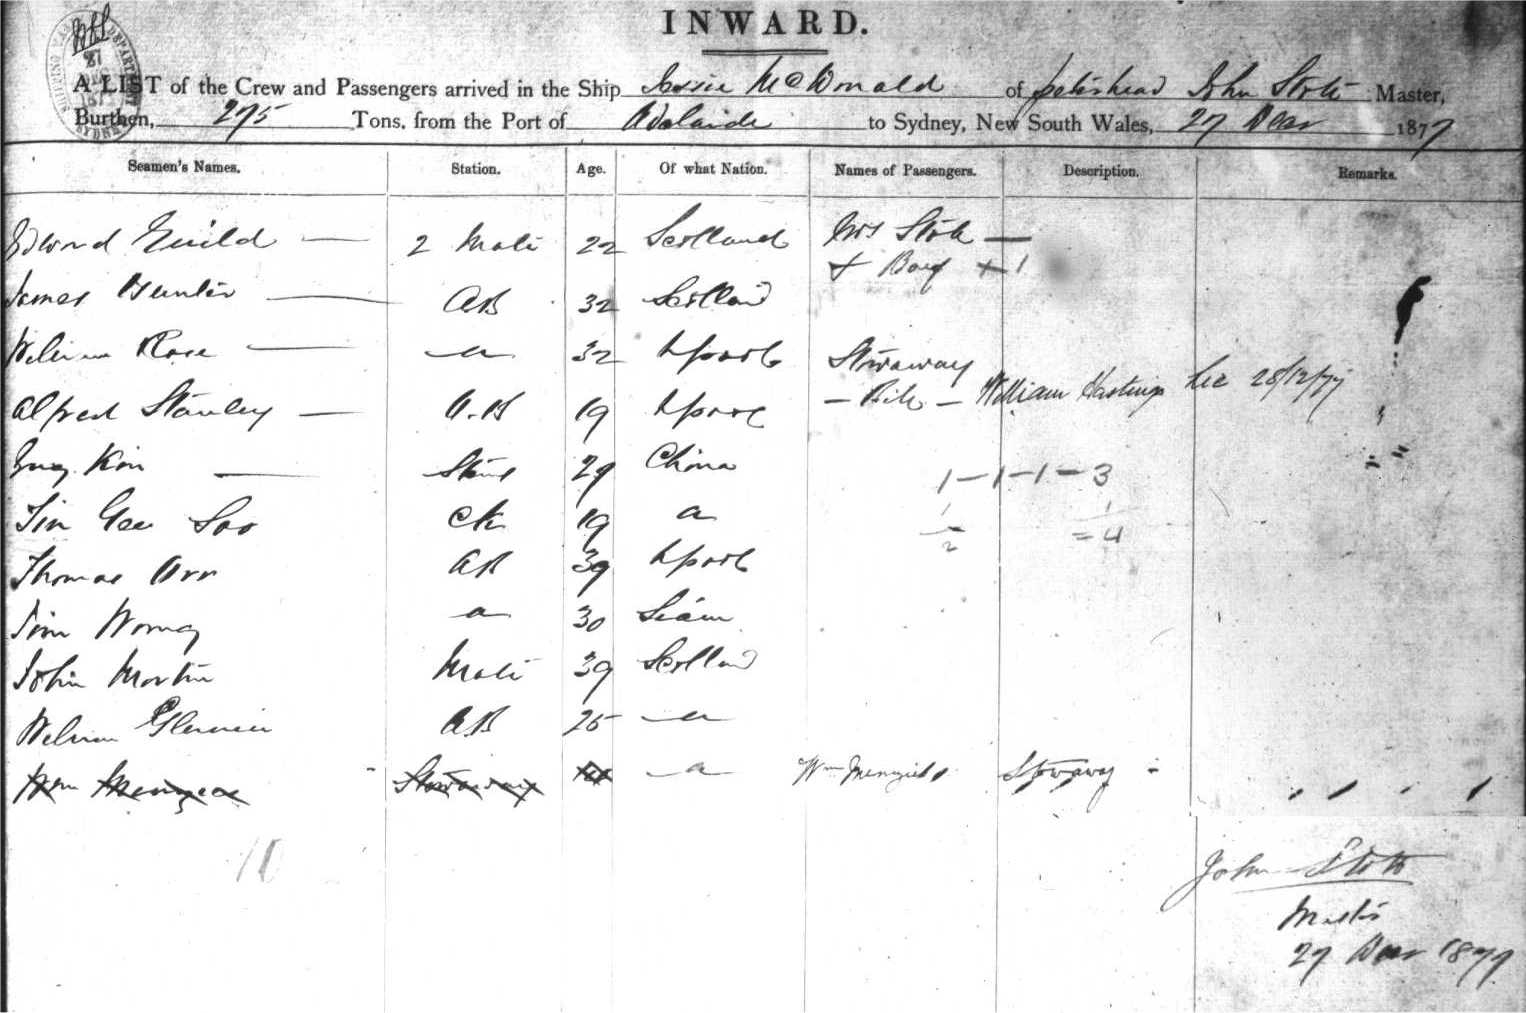 INWARD.
A LIST of the Crew and Passengers arrived in the Ship Jessie McDonald of Peterhead John Stott Master,
Burthen, 275 Tons, from the Port of Adelaide to Sydney, New South Wales, 27 Decr 1877
Seamen's Names. Station. Age. Of what Nation. Names of Passengers. Description. Remarks.
Edward Guild — 2 Mate 22 Scotland Mrs Stott —
+ Boy + 1
James Hunter — AB 32 Scotland
William Rose — a 32 Lpool Stowaway
Alfred Stanley — A.B 19 Lpool — — William Hastings 28/12/77
Kim — 29 China
1 — 1 — 1 — 3
Gee Soo Ck 19 a 1 1
2 = 4
Thomas Orr AB 39 Lpool
a 30 Siam
John Martin Mate 39 Scotland
William AB 25 a
Wm Menzies Stowaway a Wm Menzies Stowaway
10
John Stott
Master
27 Decr 1877